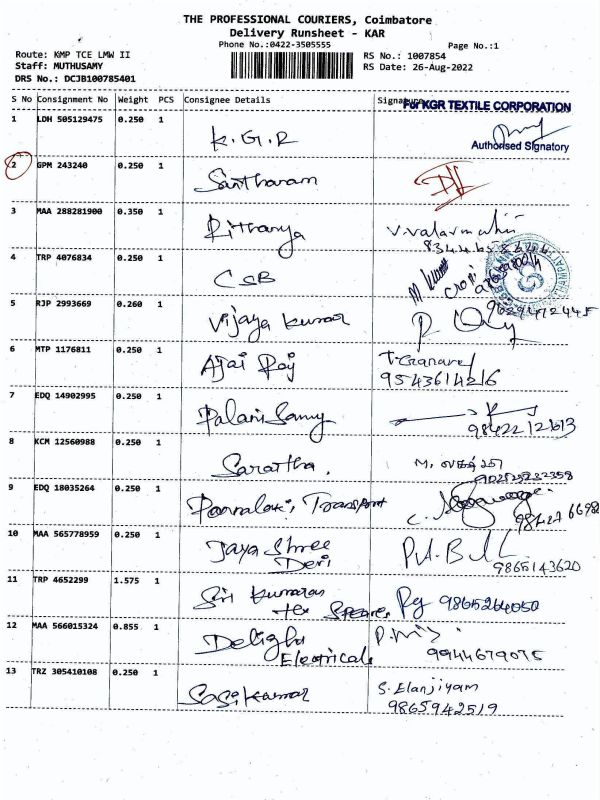 THE PROFESSIONAL COURIERS, Coimbatore
Delivery Runsheet - KAR
Phone No.:0422-3505555
Page No.:1
Route: KMP TCE LMW II
RS No.: 1007854
Staff: MUTHUSAMY
RS Date: 26-Aug-2022
DRS No.: DCJB100785401
S No Consignment No Weight PCS Consignee Details Signature
For KGR TEXTILE CORPORATION
1 LDH 505129475 0.250 1 K.G.R
Authorised Signatory
2 GPM 243240 0.250 1 Santharam
3 MAA 288281900 0.350 1 Rithanya V.Valarmathi
4 TRP 4076834 0.250 1 CSB
5 RJP 2993669 0.260 1 Vijaya Kumar
6 MTP 1176811 0.250 1 Ajai Raj
9543614216
7 EDQ 14902995 0.250 1 Palani Samy
8 KCM 12560988 0.250 1 Saratha.
9 EDQ 18035264 0.250 1 Transport
10 MAA 565778959 0.250 1 Jaya Shree
Devi
9865143620
11 TRP 4652299 1.575 1 Sri Kumaran
Tex Spares 9865264050
12 MAA 566015324 0.855 1 Delight
Electricals
9944679075
13 TRZ 305410108 0.250 1 Sasikumar S. Elanjiyam
9865942519